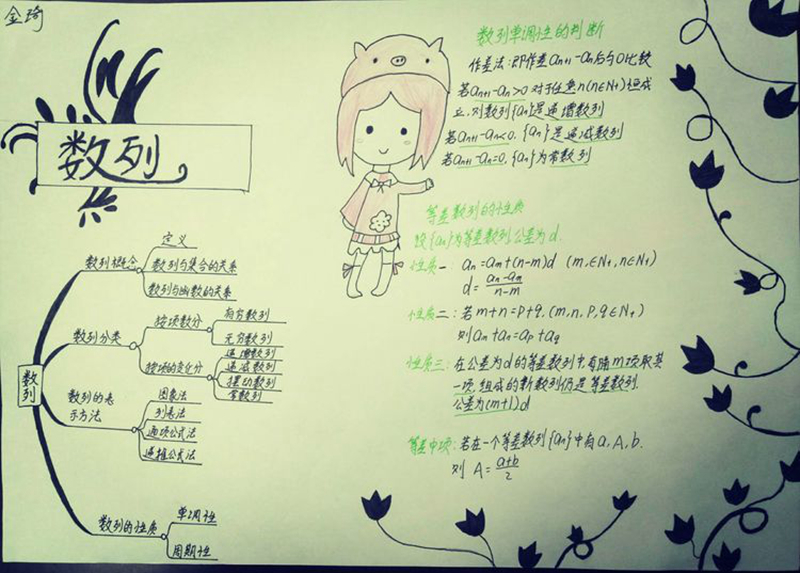 金琦
数列
数列
数列概念
定义
数列与集合的关系
数列与函数的关系
数列分类
按项数分
有穷数列
无穷数列
按项的变化分
递增数列
递减数列
摆动数列
常数列
数列的表
示方法
图象法
列表法
通项公式法
递推公式法
数列的性质
单调性
周期性
数列单调性的判断
作差法:即作差aₙ₊₁-aₙ后与0比较
若aₙ₊₁-aₙ>0对于任意n(n∈N₊)恒成
立,则数列{aₙ}是递增数列
若aₙ₊₁-aₙ<0,{aₙ}是递减数列
若aₙ₊₁-aₙ=0,{aₙ}为常数列
等差数列的性质
设{aₙ}为等差数列,公差为d.
性质一: aₙ=aₘ+(n-m)d (m,∈N₊,n∈N₊)
d=(aₙ-aₘ)/(n-m)
性质二:若m+n=p+q,(m,n,p,q∈N₊)
则aₘ+aₙ=aₚ+a_q
性质三:在公差为d的等差数列中,每隔m项取其
一项,组成的新数列仍是等差数列.
公差为(m+1)d
等差中项:若在一个等差数列{aₙ}中有a,A,b.
则 A=(a+b)/2